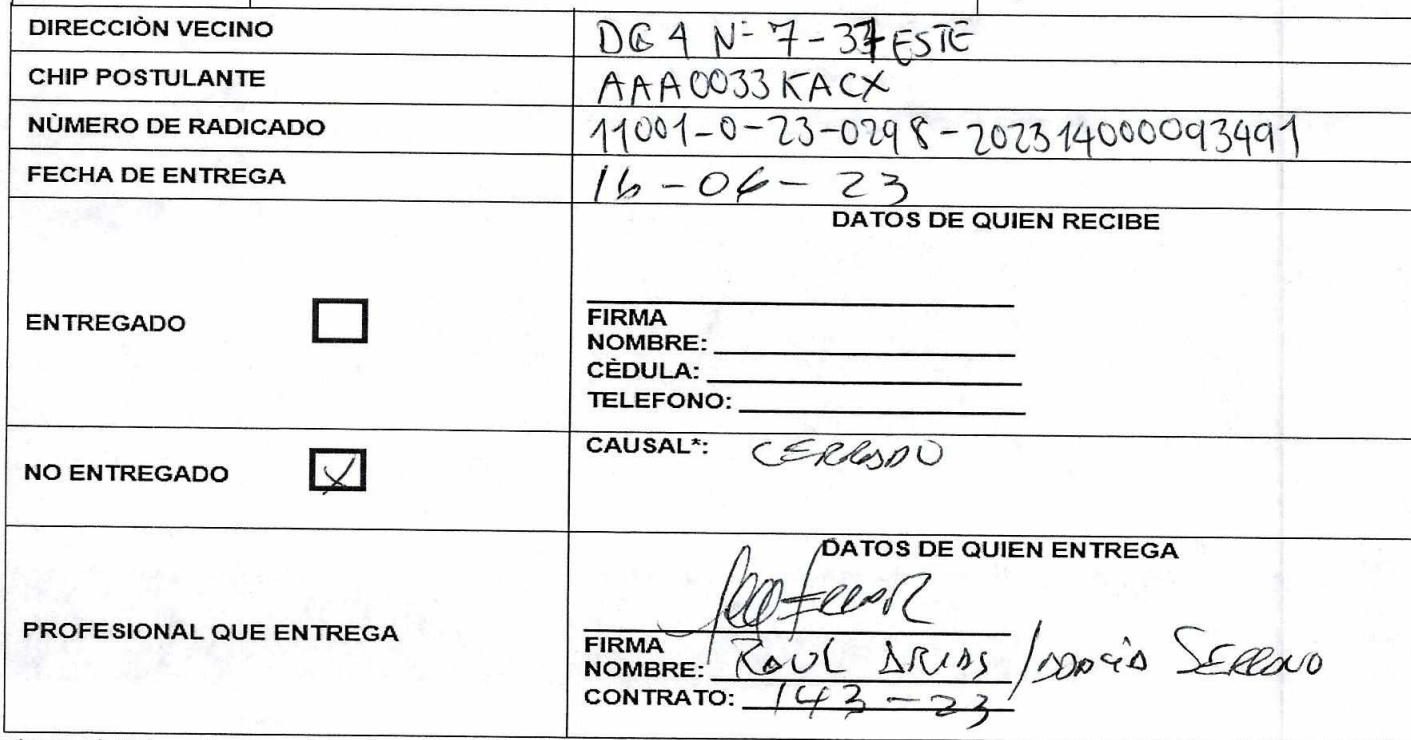 DIRECCIÒN VECINO DG 4 N- 7-37 ESTE
CHIP POSTULANTE AAA0033KACX
NÙMERO DE RADICADO 11001-0-23-0298-2023140000093491
FECHA DE ENTREGA 16-06-23
DATOS DE QUIEN RECIBE
ENTREGADO
FIRMA
NOMBRE:
CÈDULA:
TELEFONO:
NO ENTREGADO X
CAUSAL*: CERRADO
DATOS DE QUIEN ENTREGA
PROFESIONAL QUE ENTREGA
FIRMA
NOMBRE: RAUL ARIAS / SERRANO
CONTRATO: 143-23